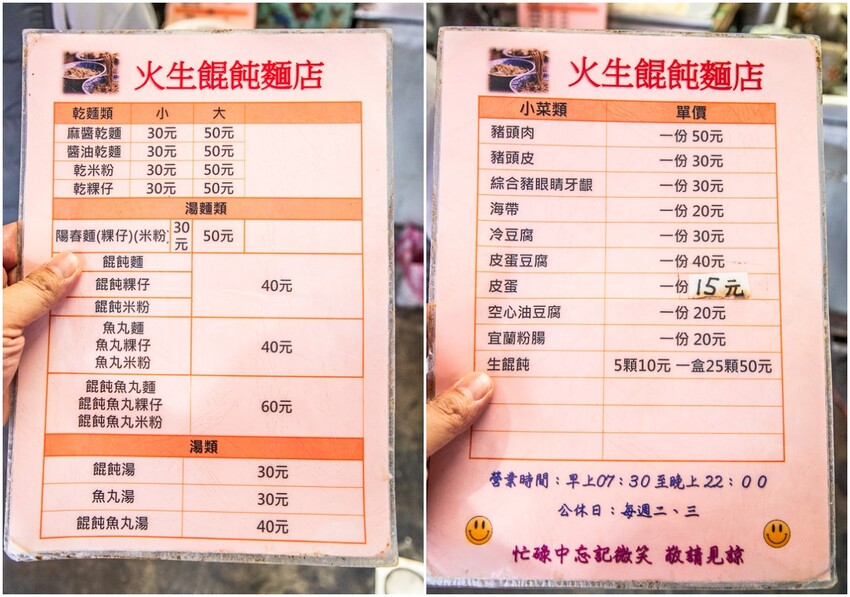 火生餛飩麵店
乾麵類 小 大
麻醬乾麵 30元 50元
醬油乾麵 30元 50元
乾米粉 30元 50元
乾粿仔 30元 50元
湯麵類
陽春麵(粿仔)(米粉) 30元 50元
餛飩麵
餛飩粿仔 40元
餛飩米粉
魚丸麵
魚丸粿仔 40元
魚丸米粉
餛飩魚丸麵
餛飩魚丸粿仔 60元
餛飩魚丸米粉
湯類
餛飩湯 30元
魚丸湯 30元
餛飩魚丸湯 40元
火生餛飩麵店
小菜類 單價
豬頭肉 一份 50元
豬頭皮 一份 30元
綜合豬眼睛牙齦 一份 30元
海帶 一份 20元
冷豆腐 一份 30元
皮蛋豆腐 一份 40元
皮蛋 一份 15元
空心油豆腐 一份 20元
宜蘭粉腸 一份 20元
生餛飩 5顆10元 一盒25顆50元
營業時間：早上07：30至晚上22：00
公休日：每週二、三
忙碌中忘記微笑 敬請見諒